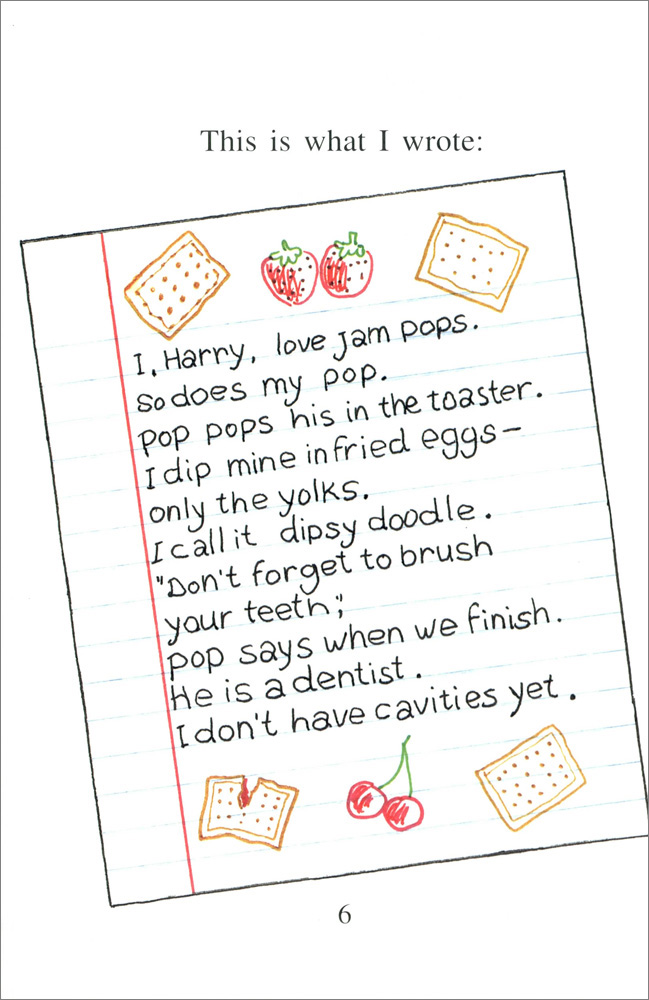 This is what I wrote:
I, Harry, love jam pops.
So does my pop.
Pop pops his in the toaster.
I dip mine in fried eggs—
only the yolks.
I call it dipsy doodle.
"Don't forget to brush
your teeth,"
pop says when we finish.
He is a dentist.
I don't have cavities yet.
6